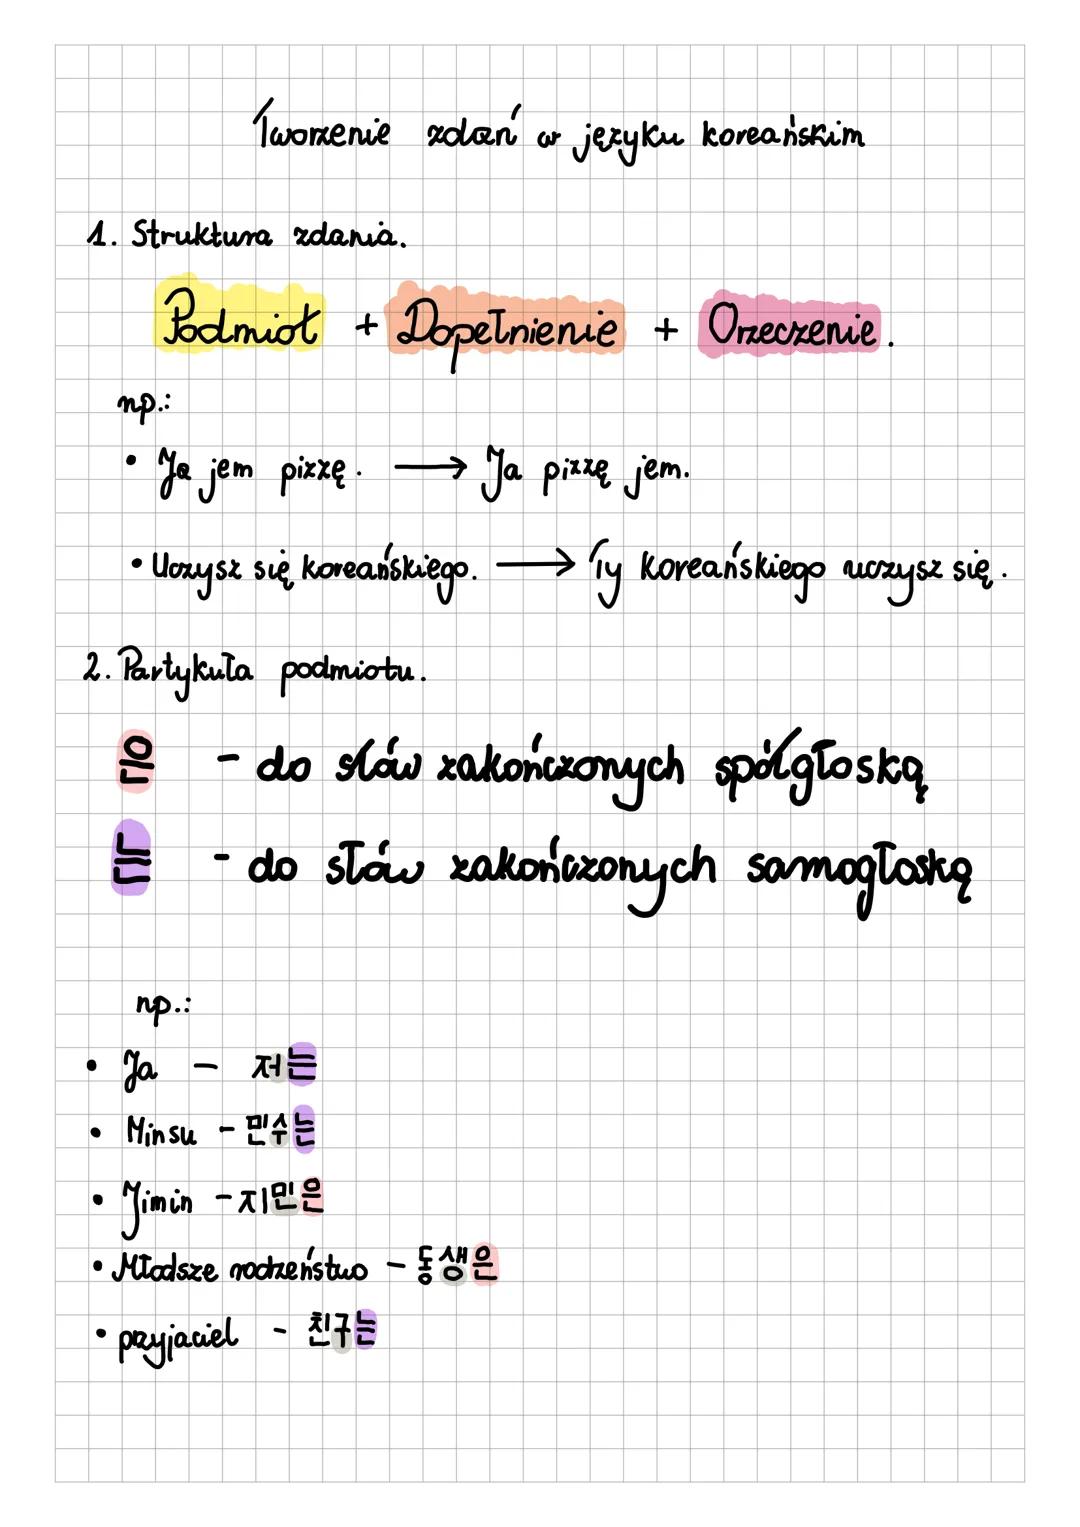 Tworzenie zdań w języku koreańskim
1. Struktura zdania.
Podmiot + Dopełnienie + Orzeczenie.
np.:
• Ja jem pizzę. → Ja pizzę jem.
• Uczysz się koreańskiego. → Ty koreańskiego uczysz się.
2. Partykuła podmiotu.
은 - do słów zakończonych spółgłoską
는 - do słów zakończonych samogłoską
np.:
• Ja – 저는
• Minsu - 민수는
• Jimin - 지민은
• Młodsze rodzeństwo - 동생은
• przyjaciel - 친구는